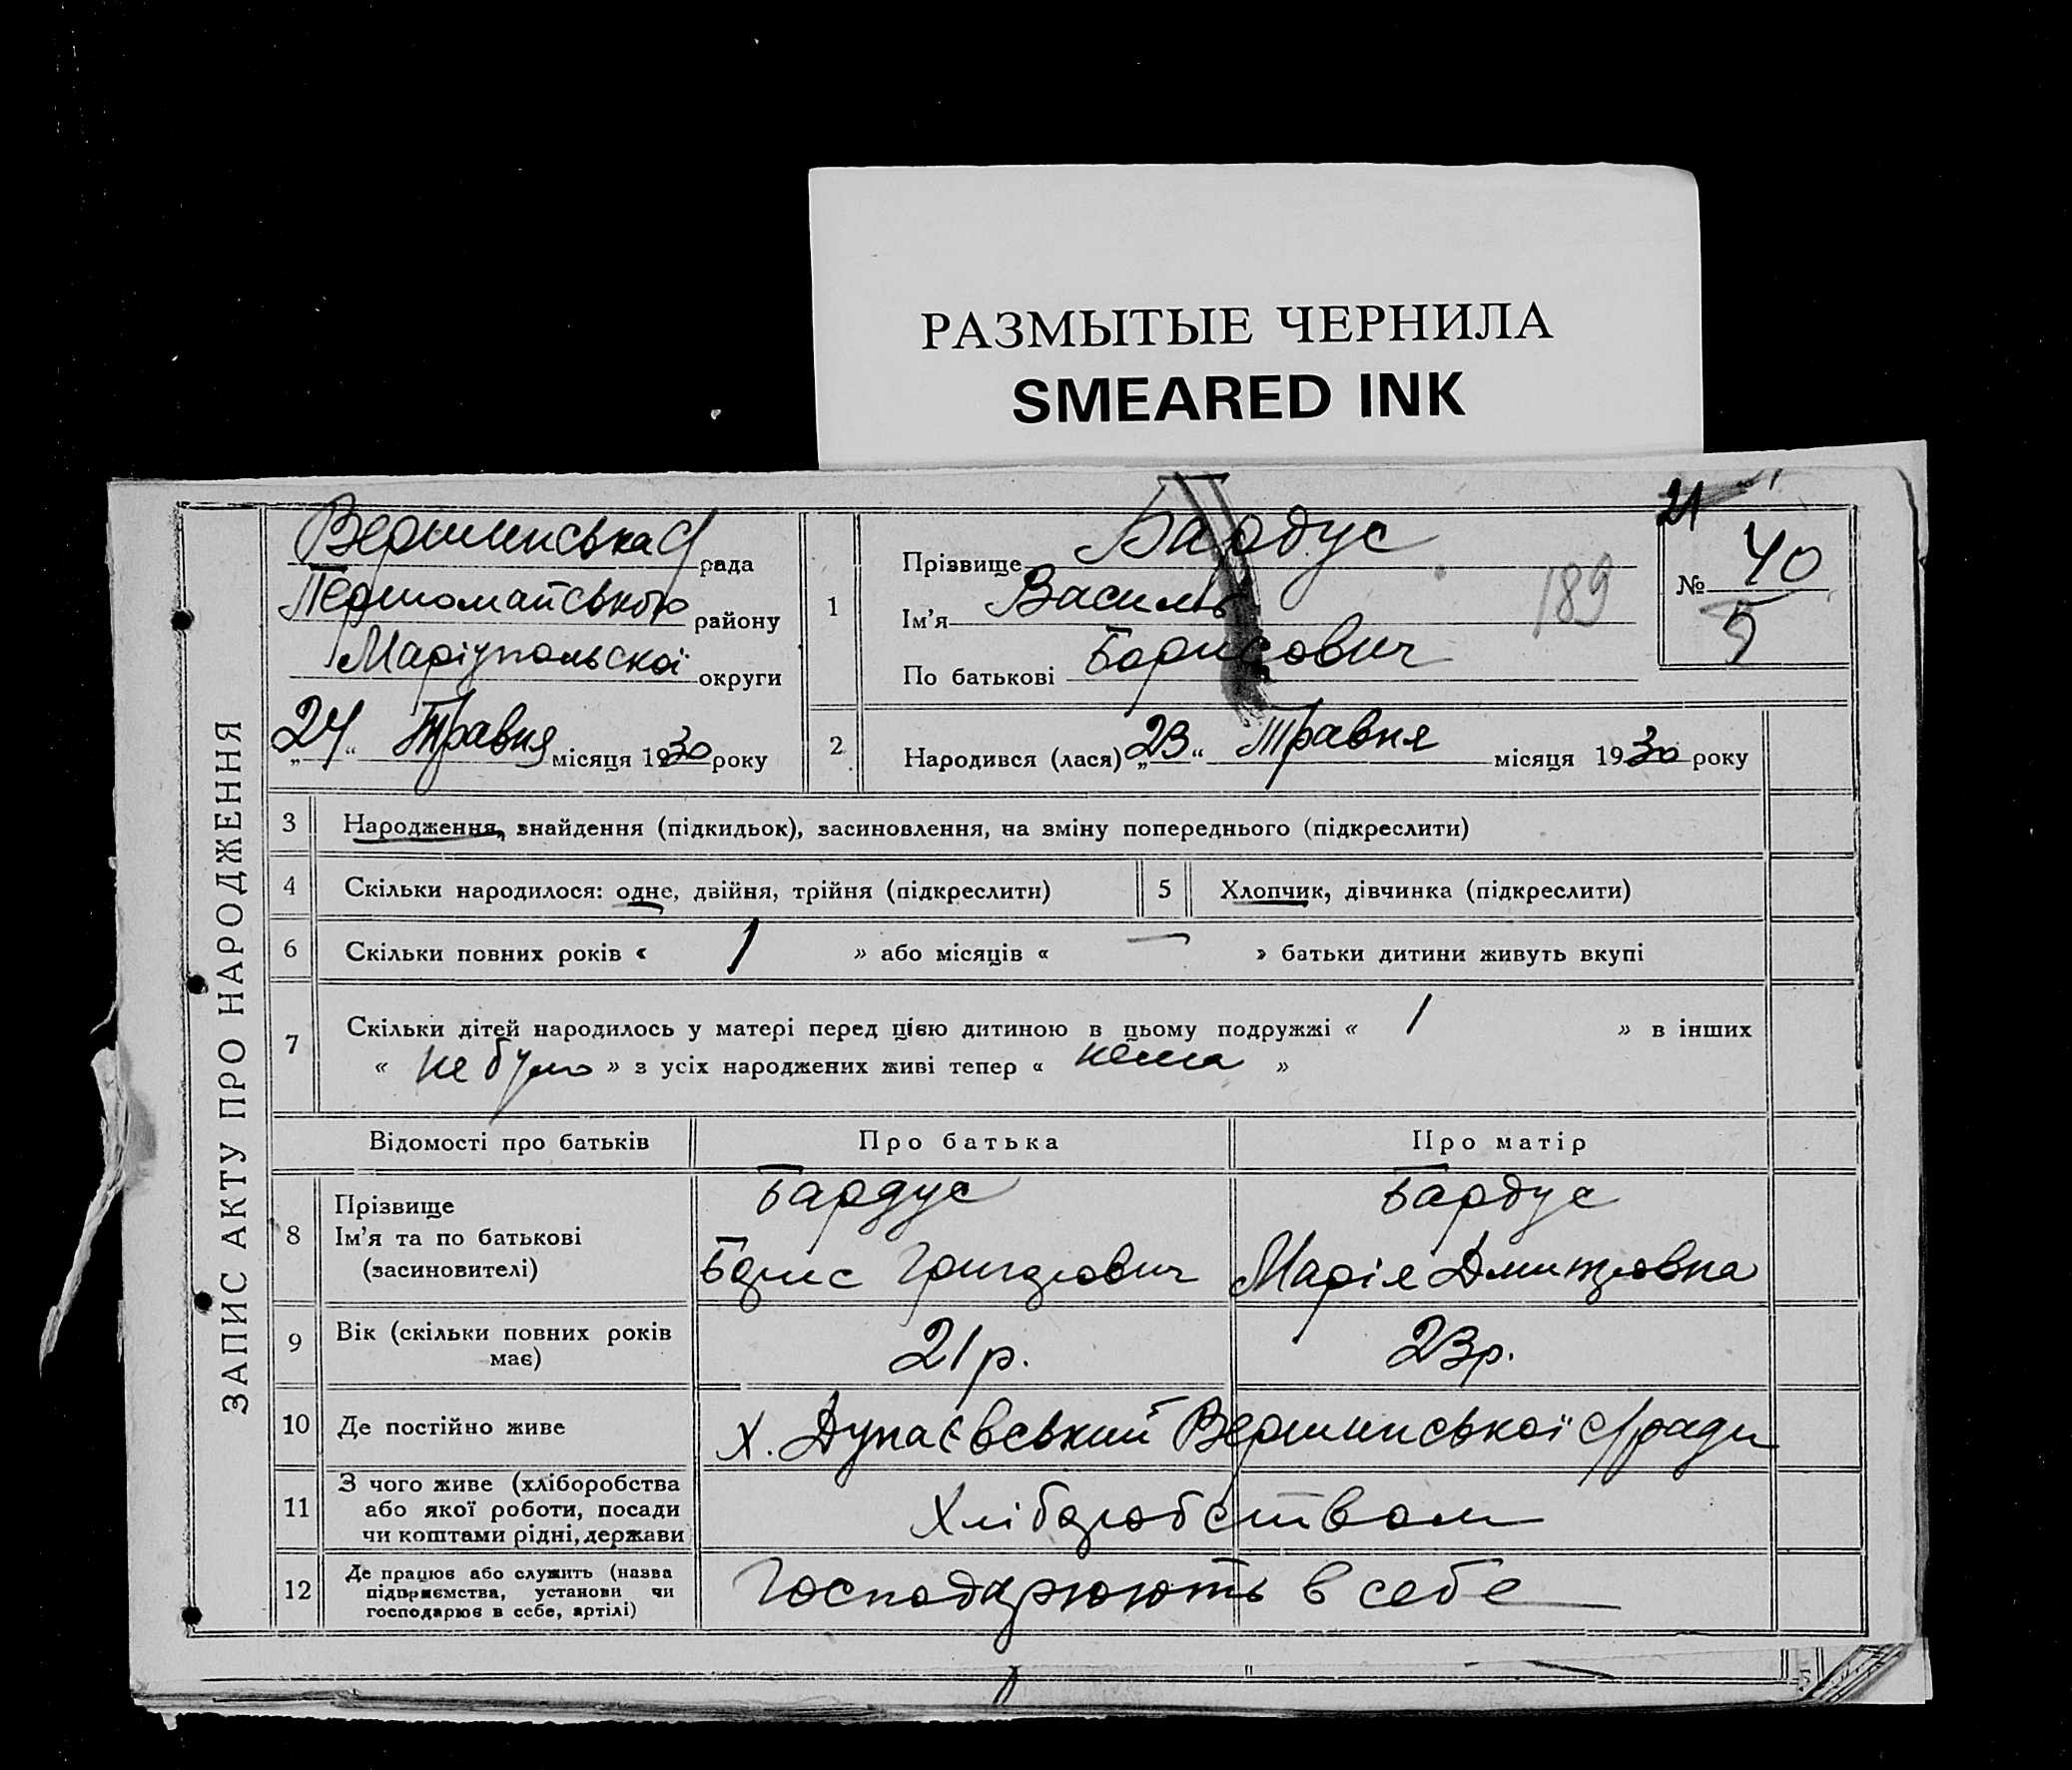 РАЗМЫТЫЕ ЧЕРНИЛА
SMEARED INK
ЗАПИС АКТУ ПРО НАРОДЖЕННЯ
Вершинська с/рада
Першомайського району
Маріупольскої округи
„24“ Травня місяця 1930 року
1
Прізвище Бардус
Ім'я Василь
По батькові Борисович
189
21
№ 40
5
2
Народився (лася) „23“ Травня місяця 1930 року
3 Народження, знайдення (підкидьок), засиновлення, на зміну попереднього (підкреслити)
4 Скільки народилося: одне, двійня, трійня (підкреслити)
5 Хлопчик, дівчинка (підкреслити)
6 Скільки повних років « 1 » або місяців « — » батьки дитини живуть вкупі
7 Скільки дітей народилось у матері перед цією дитиною в цьому подружжі « 1 » в інших
« не було » з усіх народжених живі тепер « нема »
Відомості про батьків Про батька Про матір
8 Прізвище
Ім'я та по батькові
(засиновителі)
Бардус
Борис Григорович
Бардус
Марія Дмитровна
9 Вік (скільки повних років
має)
21 р. 23 р.
10 Де постійно живе х. Дунаєвський Вершинської с/ради
11 З чого живе (хліборобства
або якої роботи, посади
чи коштами рідні, держави
Хліборобством
12 Де працює або служить (назва
підприємства, установи чи
господарює в себе, артілі)
Господарюють в себе